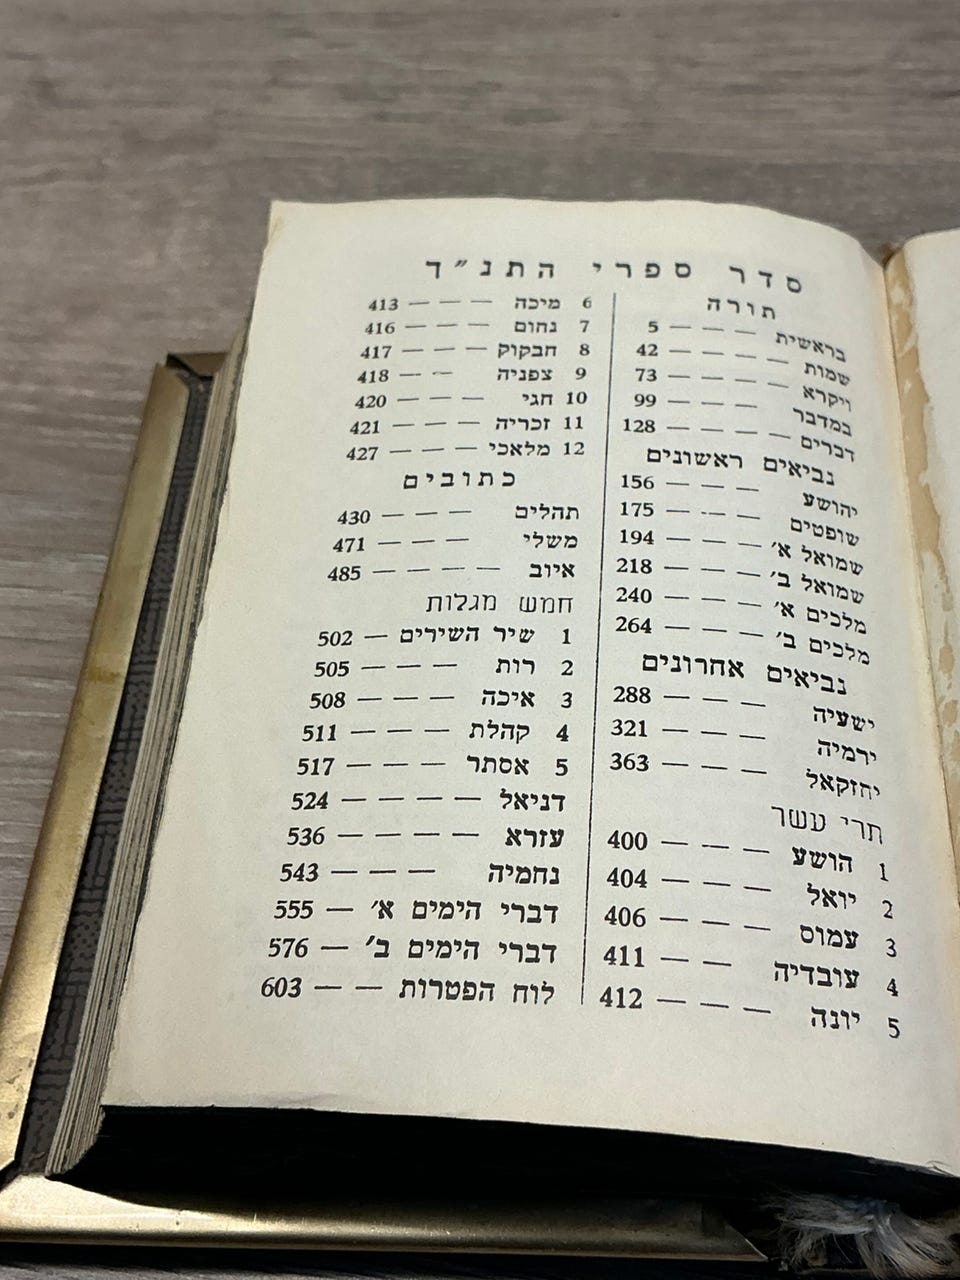 סדר ספרי התנ״ך
תורה
בראשית — — — 5
שמות — — — — 42
ויקרא — — — — 73
במדבר — — — 99
דברים — — — — 128
נביאים ראשונים
יהושע — — — 156
שופטים — — — — 175
שמואל א׳ — — — — 194
שמואל ב׳ — — — — 218
מלכים א׳ — — — — 240
מלכים ב׳ — — — — 264
נביאים אחרונים
ישעיה — — — 288
ירמיה — — — 321
יחזקאל — — — 363
תרי עשר
1 הושע — — — 400
2 יואל — — — 404
3 עמוס — — — — 406
4 עובדיה — — — 411
5 יונה — — — 412
6 מיכה — — — 413
7 נחום — — — — 416
8 חבקוק — — — — 417
9 צפניה — — 418
10 חגי — — — — 420
11 זכריה — — — — 421
12 מלאכי — — — 427
כתובים
תהלים — — — 430
משלי — — — 471
איוב — — — — 485
חמש מגלות
1 שיר השירים — 502
2 רות — — — 505
3 איכה — — — 508
4 קהלת — — — 511
5 אסתר — — — 517
דניאל — — — — 524
עזרא — — — — 536
נחמיה — — — 543
דברי הימים א׳ — 555
דברי הימים ב׳ — 576
לוח הפטרות — — 603